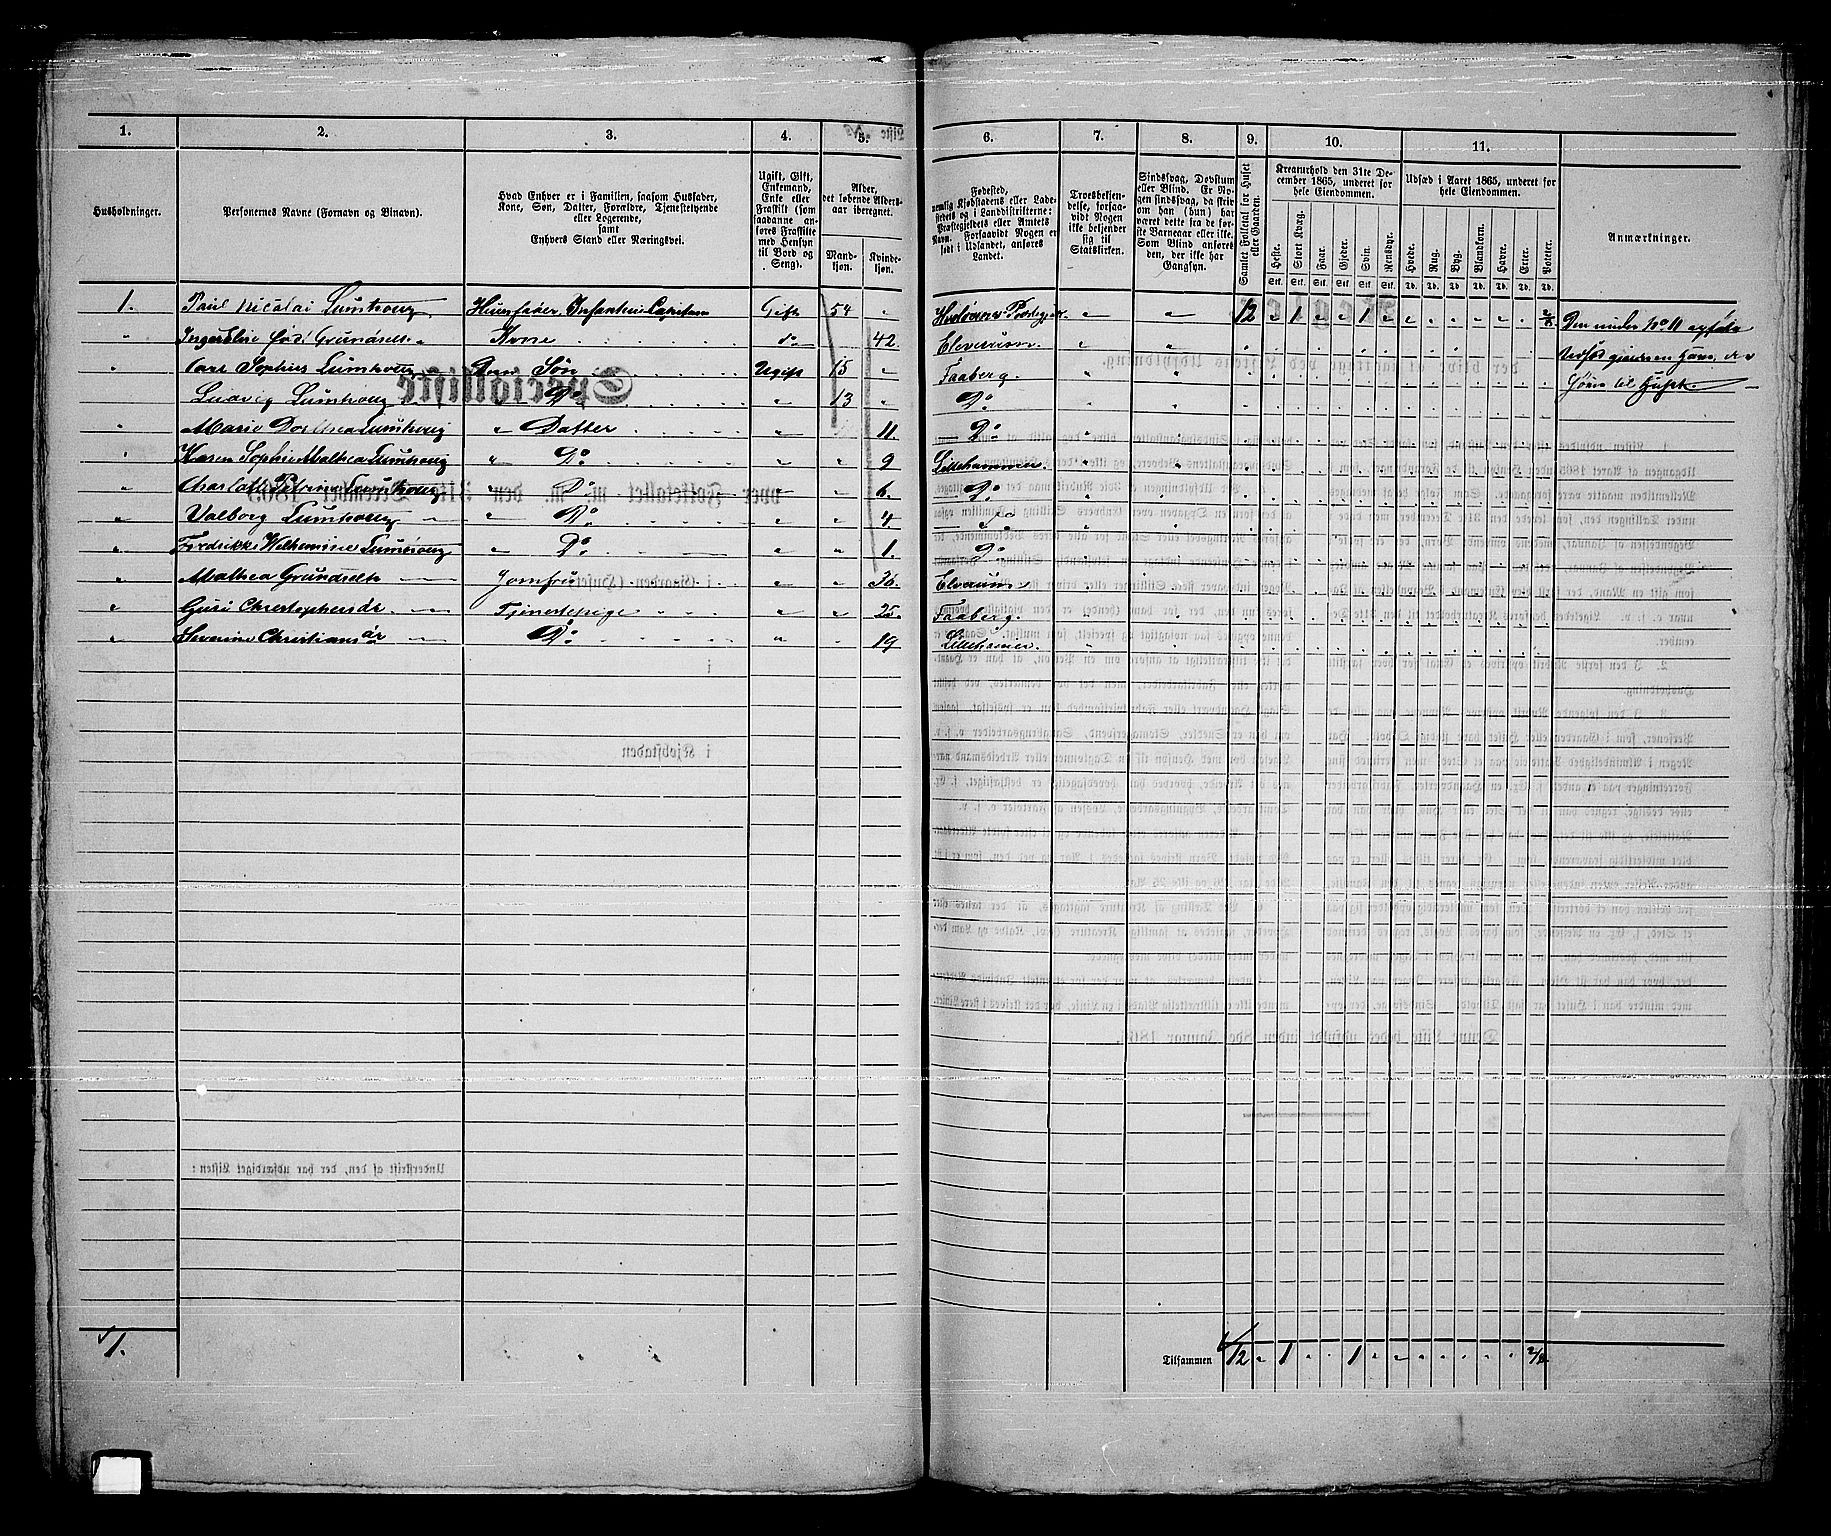 1. 2. 3. 4. 5. 6. 7. 8. 9. 10. 11.
Husholdninger.
Personernes Navne (Fornavn og Vinavn).
Hvad Enhver er i Familien, saasom Husfader,
Kone, Søn, Datter, Forældre, Tjenestetyende
eller Logerende,
samt
Enhvers Stand eller Næringsvei.
Ugift, Gift,
Enkemand,
Enke eller
Fraskilt (som
saadanne an-
føres Fraskilte
med Hensyn
til Bord og
Seng).
Alder,
det løbende Alders-
aar iberegnet.
Mand-
kjøn.
Kvinde-
kjøn.
Fødested,
nemlig Kjøbstadens eller Lade-
stedets og i Landdistrikterne:
Præstegjeldets eller Amtets
Navn. Forsaavidt Nogen er
født i Udlandet, anføres
Landet.
Troesbekjen-
delse, forsaa-
vidt Nogen
ikke bekjender
sig til
Statskirken.
Sindssvag, Døvstum
eller Blind. Er No-
gen sindssvag, da skriv
om han (hun) har
været dette fra de før-
ste Barneaar eller ikke.
Som Blind anføres
den, der ikke har
Gangsyn.
Samlet Folketal for Huset
eller Gaarden.
Kreaturhold den 31te De-
cember 1865, underet for
hele Eiendommen.
Heste. Stort Kvæg. Faar. Gjeder. Svin. Rensdyr.
Stk. Stk. Stk. Stk. Stk. Stk.
Udsæd i Aaret 1865, underet for
hele Eiendommen.
Hvede. Rug. Byg. Blandkorn. Havre. Erter. Poteter.
Td. Td. Td. Td. Td. Td. Td.
Anmærkninger.
1. Paul Nicolai Lumhoug Huusfader, Infanteri Capitain Gift 54 " " " 12 " 1 " " 1 " Den under No 11
" Ingereline Kone do 42. Elverum
" Carl Sophus Lumhoug Søn Ugift 15 " Faaberg.
Ludvig Lumhoug Do " 13 " Do til
" Marie Dorthea Lumhoug " Datter " 11. Do
" Karen Sophie Mathea Lumhoug " Do " " 9 Lillehammer.
" Charlotte Petrine Lumhoug " Do 6. Do
" Valborg Lumhoug " Do. " " 4. Do
" Fredrikke Wilhelmine Lumhoug " Do. " " 1. Do
" Mathea Grundseth Jomfru " " 36. Elverum
" Guri Christophersdr Tjenestepige " " 25. Faaberg.
" Severine Christiansdr Do. " 19 Lillehamer.
1.
Tilsammen 12 " 1 " " 1 " "